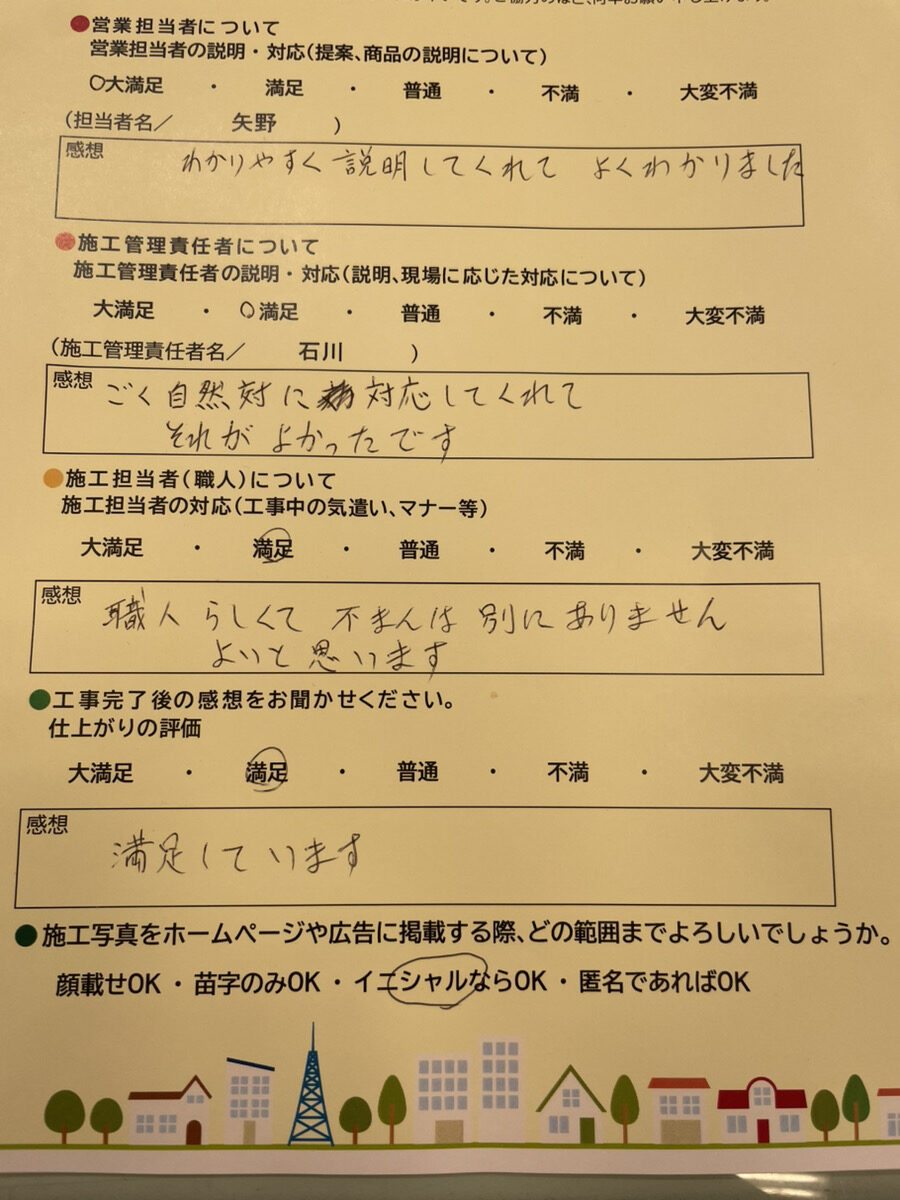 ●営業担当者について
営業担当者の説明・対応(提案、商品の説明について)
○大満足 ・ 満足 ・ 普通 ・ 不満 ・ 大変不満
(担当者名／ 矢野 )
感想 わかりやすく説明してくれて よくわかりました
●施工管理責任者について
施工管理責任者の説明・対応(説明、現場に応じた対応について)
大満足 ・ ○満足 ・ 普通 ・ 不満 ・ 大変不満
(施工管理責任者名／ 石川 )
感想 ごく自然対に対応してくれて
それがよかったです
●施工担当者(職人)について
施工担当者の対応(工事中の気遣い、マナー等)
大満足 ・ 満足 ・ 普通 ・ 不満 ・ 大変不満
感想 職人らしくて 不まんは 別にありません
よいと思います
●工事完了後の感想をお聞かせください。
仕上がりの評価
大満足 ・ 満足 ・ 普通 ・ 不満 ・ 大変不満
感想
満足しています
●施工写真をホームページや広告に掲載する際、どの範囲までよろしいでしょうか。
顔載せOK ・ 苗字のみOK ・ イニシャルならOK ・ 匿名であればOK